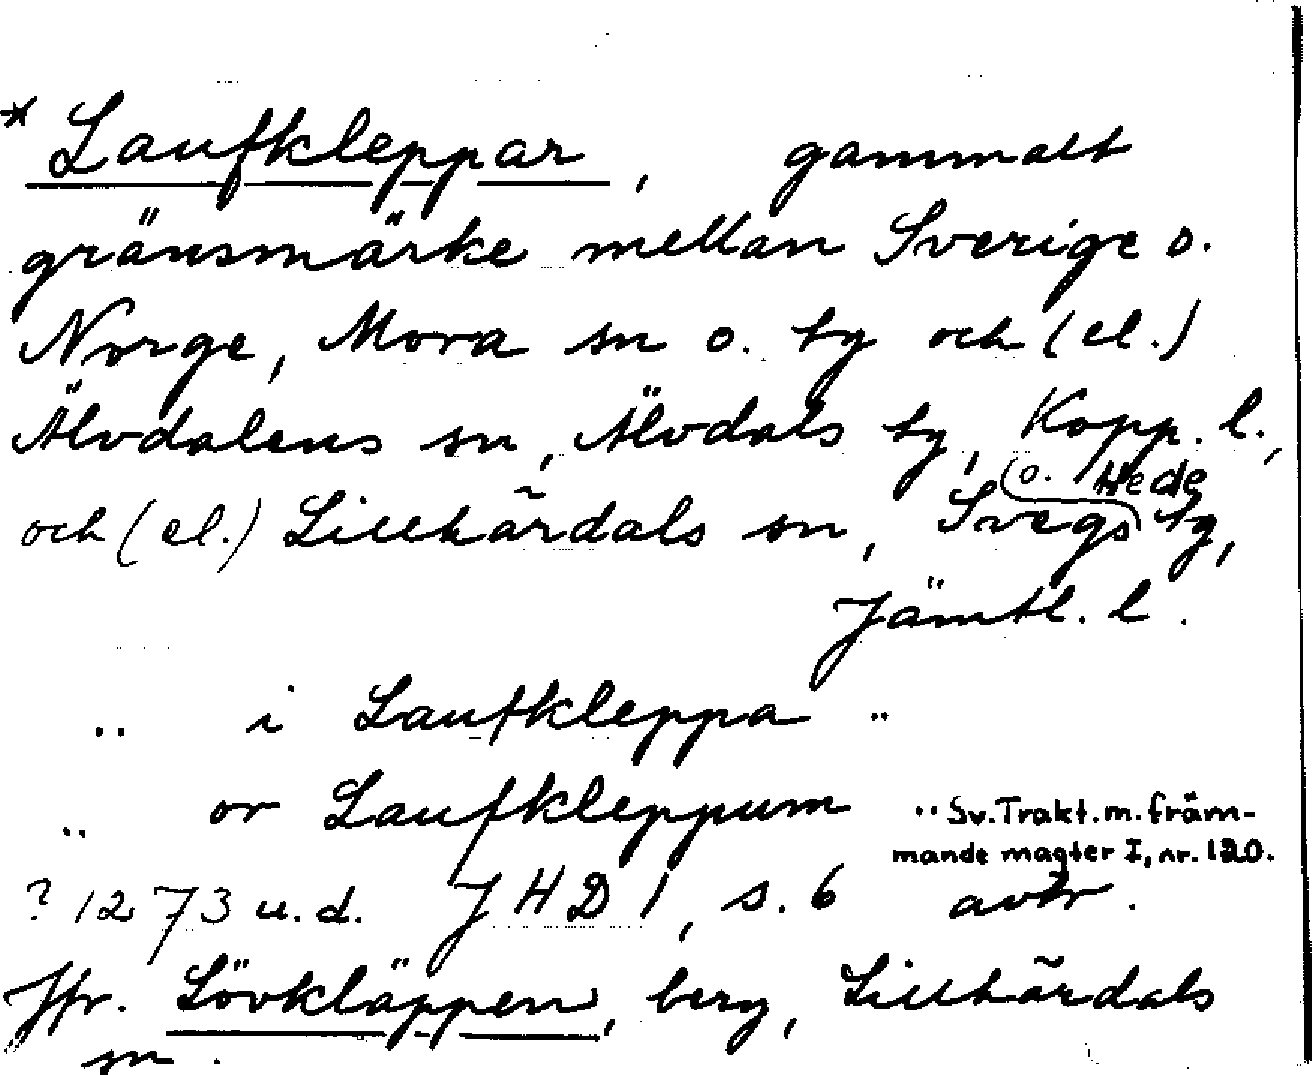 * Laufkleppar, gammalt
gränsmärke mellan Sverige o.
Norge, Mora sn o. tg och (el.)
Älvdalens sn, Älvdals tg, Kopp. l.,
och (el.) Lillhärdals sn, Svegs o. Hede tg,
Jämtl. l.
" i Laufkleppa "
" or Laufkleppum " Sv. Trakt. m. främ-
mande magter I, nr. 120.
? 1273 u.d. JHD 1, s. 6 avtr.
Jfr. Lövkläppen, berg, Lillhärdals
sn.